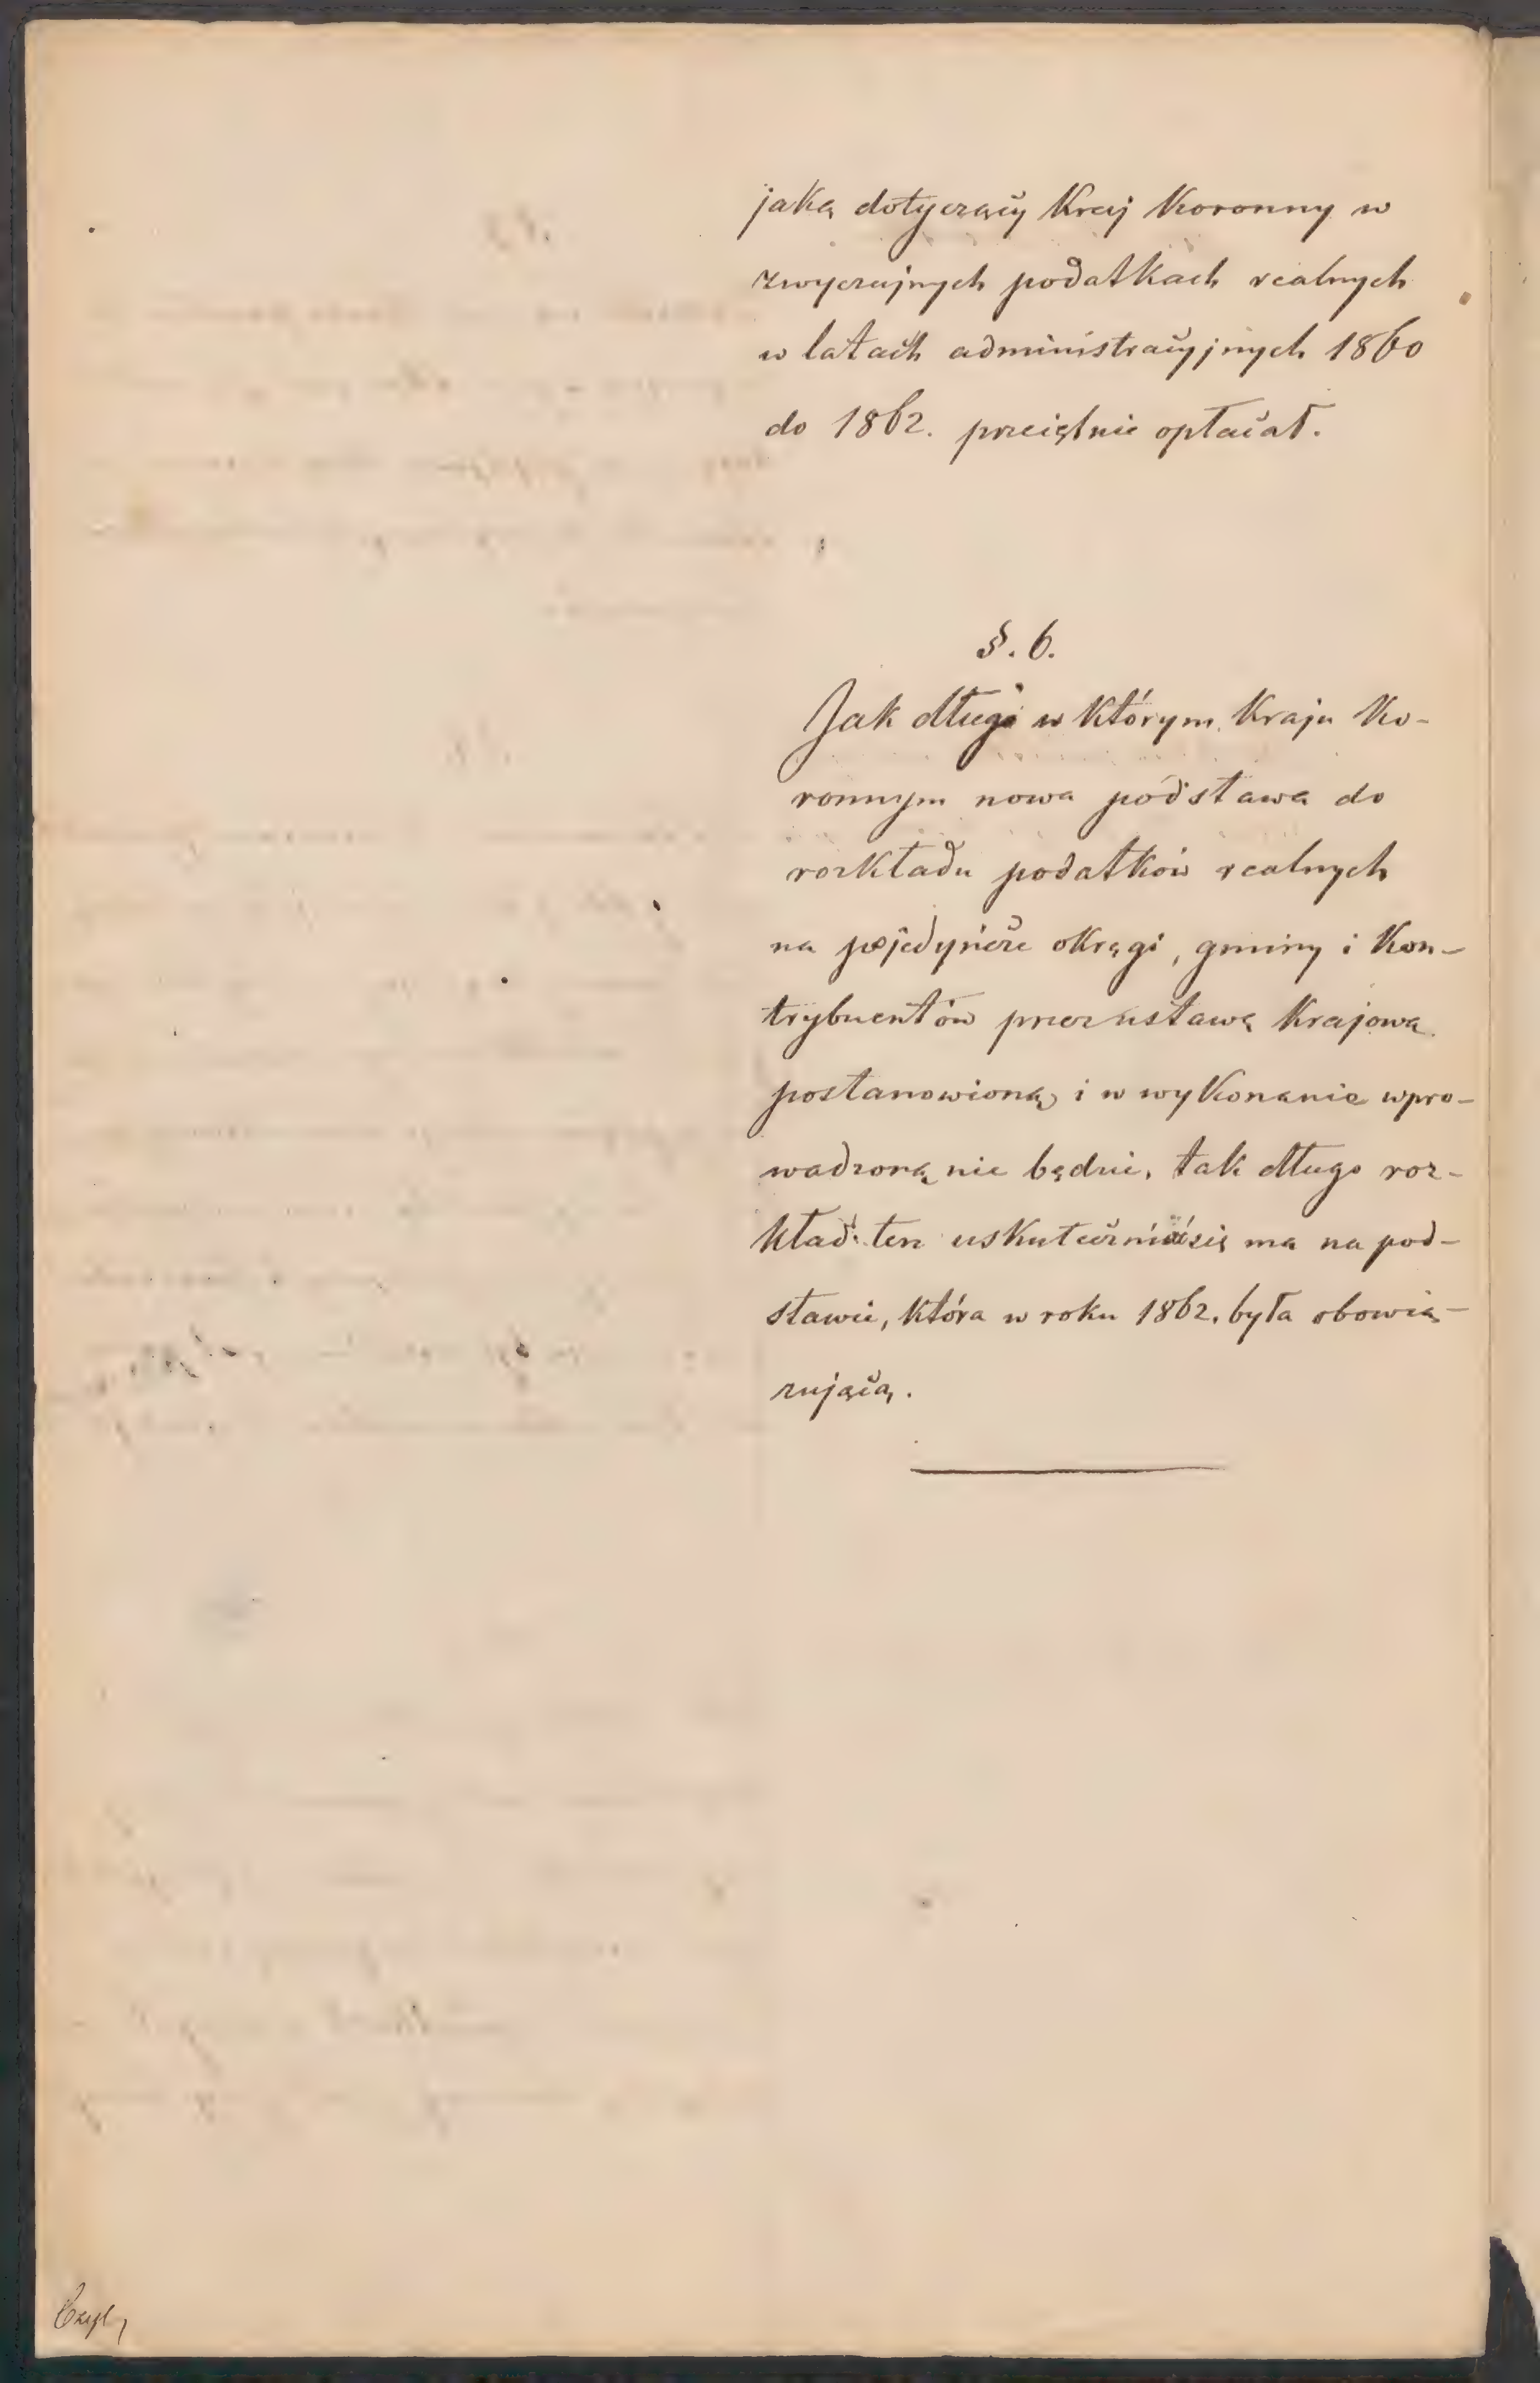 jaką dotyczący Kraj Koronny w
zwyczajnych podatkach realnych
w latach administracyjnych 1860
do 1862. przeciętnie opłacał.
§. 6.
Jak długo w którym Kraju Ko-
ronnym nowa podstawa do
rozkładu podatków realnych
na pojedyńcze okręgi, gminy i Kon-
trybuentów przez ustawę Krajową
postanowioną i w wykonanie wpro-
wadzoną nie będzie, tak długo roz-
kład ten uskuteczniać się ma na pod-
stawie, która w roku 1862. była obowią-
zującą.